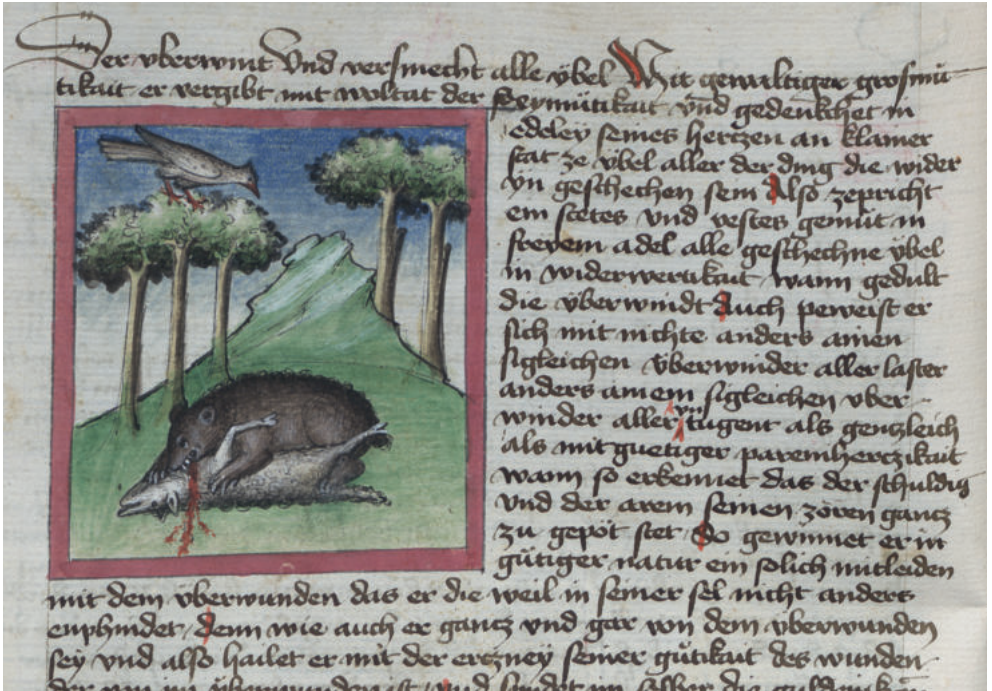 Der vberwint Vnd versmecht alle vbel Mit gewaltiger grosmü-
tikait er vergibt mit woltat der seymütikait vnd gedenkchet in
edeley seines hertzen an klainer
stat ze vbel aller der ding die wider
yn geschechen sein Also zepricht
ein stetes vnd vestes gemüt in
freyem adel alle geschechne vbel
in widerwertikait wann gedult
die vberwindt Auch peweist er
sich mit nichte anders ainen
sigleichen vberwinder aller laster
anders ainem sigleichen vber-
winder aller vntugent als gentzleich
als mit guetiger paremhertzikait
wann so erkennet das der schuldig
vnd der arem seinen zoren gantz
zu gepot stet So gewinnet er in
gütiger natur ein solich mitleiden
mit dem vberwunden das er die weil in seiner sel nicht anders
enphindet denn wie auch er gantz vnd gar von dem vberwunden
sey vnd also hailet er mit der ertzney seiner gütikait des wunden
der von im vberwunden ist vnd